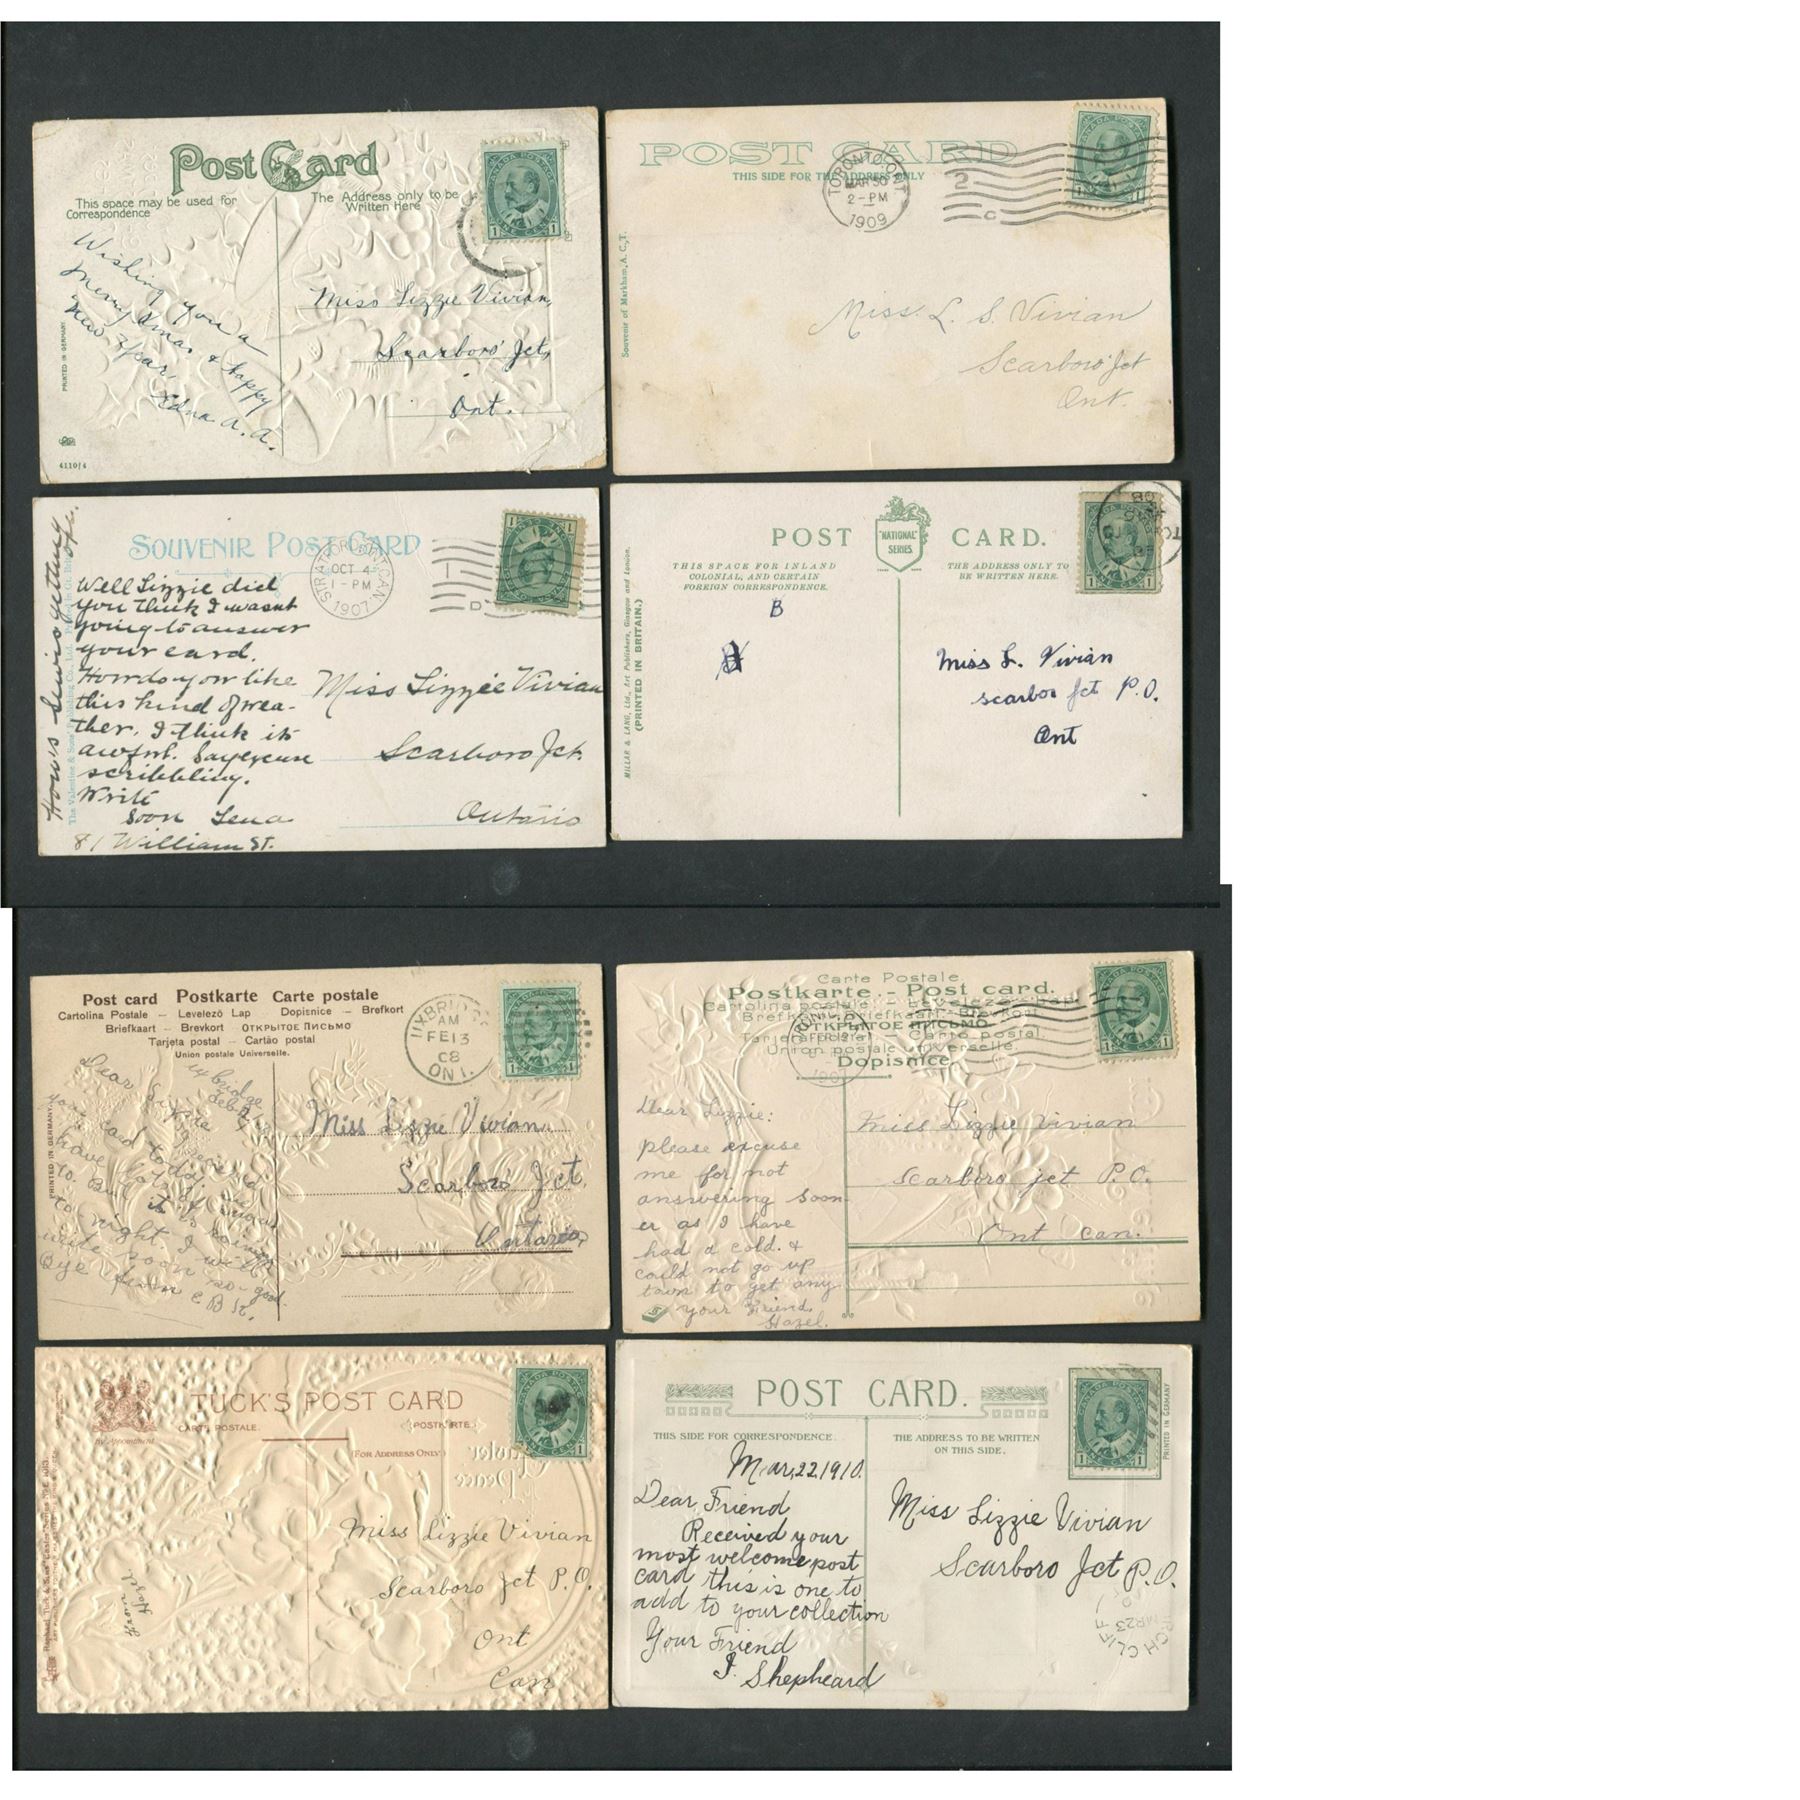 Post Card
This space may be used for
Correspondence
The Address only to be
Written Here
CANADA POSTAGE
1 ONE CENT 1
Wishing you a
Merry Xmas & happy
New Year,
Edna A. A.
Miss Lizzie Vivian,
Scarboro' Jct,
Ont.
PRINTED IN GERMANY
4110/4
POST CARD
THIS SIDE FOR THE ADDRESS ONLY
TORONTO, ONT.
MAR 30
2-PM
1909
2
C
CANADA POSTAGE
1 1
Souvenir of Markham, A. C. T.
Miss. L. S. Vivian
Scarboro' Jct
Ont.
SOUVENIR POST CARD
STRATFORD, ONT. CAN.
OCT 4
1-PM
1907
D
CANADA POSTAGE
1 ONE CENT 1
How is Lewis getting
Well Lizzie did
you think I wasnt
going to answer
your card.
How do you like
this kind of wea-
ther. I think its
awful. Say excuse
scribbling.
Write
soon Lena
81 William St.
Miss Lizzie Vivian
Scarboro Jct.
Ontario
POST CARD.
"NATIONAL"
SERIES
THIS SPACE FOR INLAND
COLONIAL, AND CERTAIN
FOREIGN CORRESPONDENCE.
THE ADDRESS ONLY TO
BE WRITTEN HERE.
MILLAR & LANG, Ltd., Art Publishers, Glasgow and London.
(PRINTED IN BRITAIN.)
B
1 ONE CENT 1
08
Miss L. Vivian
scarboro Jct P.O.
Ont
Post card Postkarte Carte postale
Cartolina Postale — Levelezö Lap Dopisnice — Brefkort
Briefkaart — Brevkort ОТКРЫТОЕ ПИСЬМО
Tarjeta postal — Cartão postal
Union postale Universelle.
PRINTED IN GERMANY.
UXBRIDGE
AM
FE 13
08
ONT.
CANADA POSTAGE
1 ONE CENT 1
Uxbridge
Feb 12
Dear Lizzie
I received
your card today
have lots of
to. But it is
to night. I will
write soon so-good
Bye from E B K.
Miss Lizzie Vivian
Scarboro' Jct.
Ontario
Carte Postale
Postkarte - Post card.
Cartolina postale - Levelezo-Lap
Brefkort Briefkaart - Brevkort
ОТКРЫТОЕ ПИСЬМО
Tarjeta postal - Carte postal.
Union postale universelle.
Dopisnice
CANADA POSTAGE
1 ONE CENT 1
Dear Lizzie:
please excuse
me for not
answering soon-
er as I have
had a cold. &
could not go up
town to get any
your Friend,
Hazel.
Miss Lizzie Vivian
Scarboro jct P.O.
Ont can.
TUCK'S POST CARD
CARTE POSTALE. POSTKARTE.
By Appointment
(FOR ADDRESS ONLY)
Easter
Peace
CANADA POSTAGE
ONE CENT 1
From
Hazel
Miss Lizzie Vivian
Scarboro jct P.O.
Ont
Can
POST CARD.
THIS SIDE FOR CORRESPONDENCE.
THE ADDRESS TO BE WRITTEN
ON THIS SIDE.
CANADA POSTAGE
1 ONE CENT 1
PRINTED IN GERMANY
Mar, 22, 1910.
Dear Friend
Received your
most welcome post
card this is one to
add to your collection
Your Friend
I. Shepheard
Miss Lizzie Vivian
Scarboro Jct P.O.
BIRCH CLIFF
MR 23